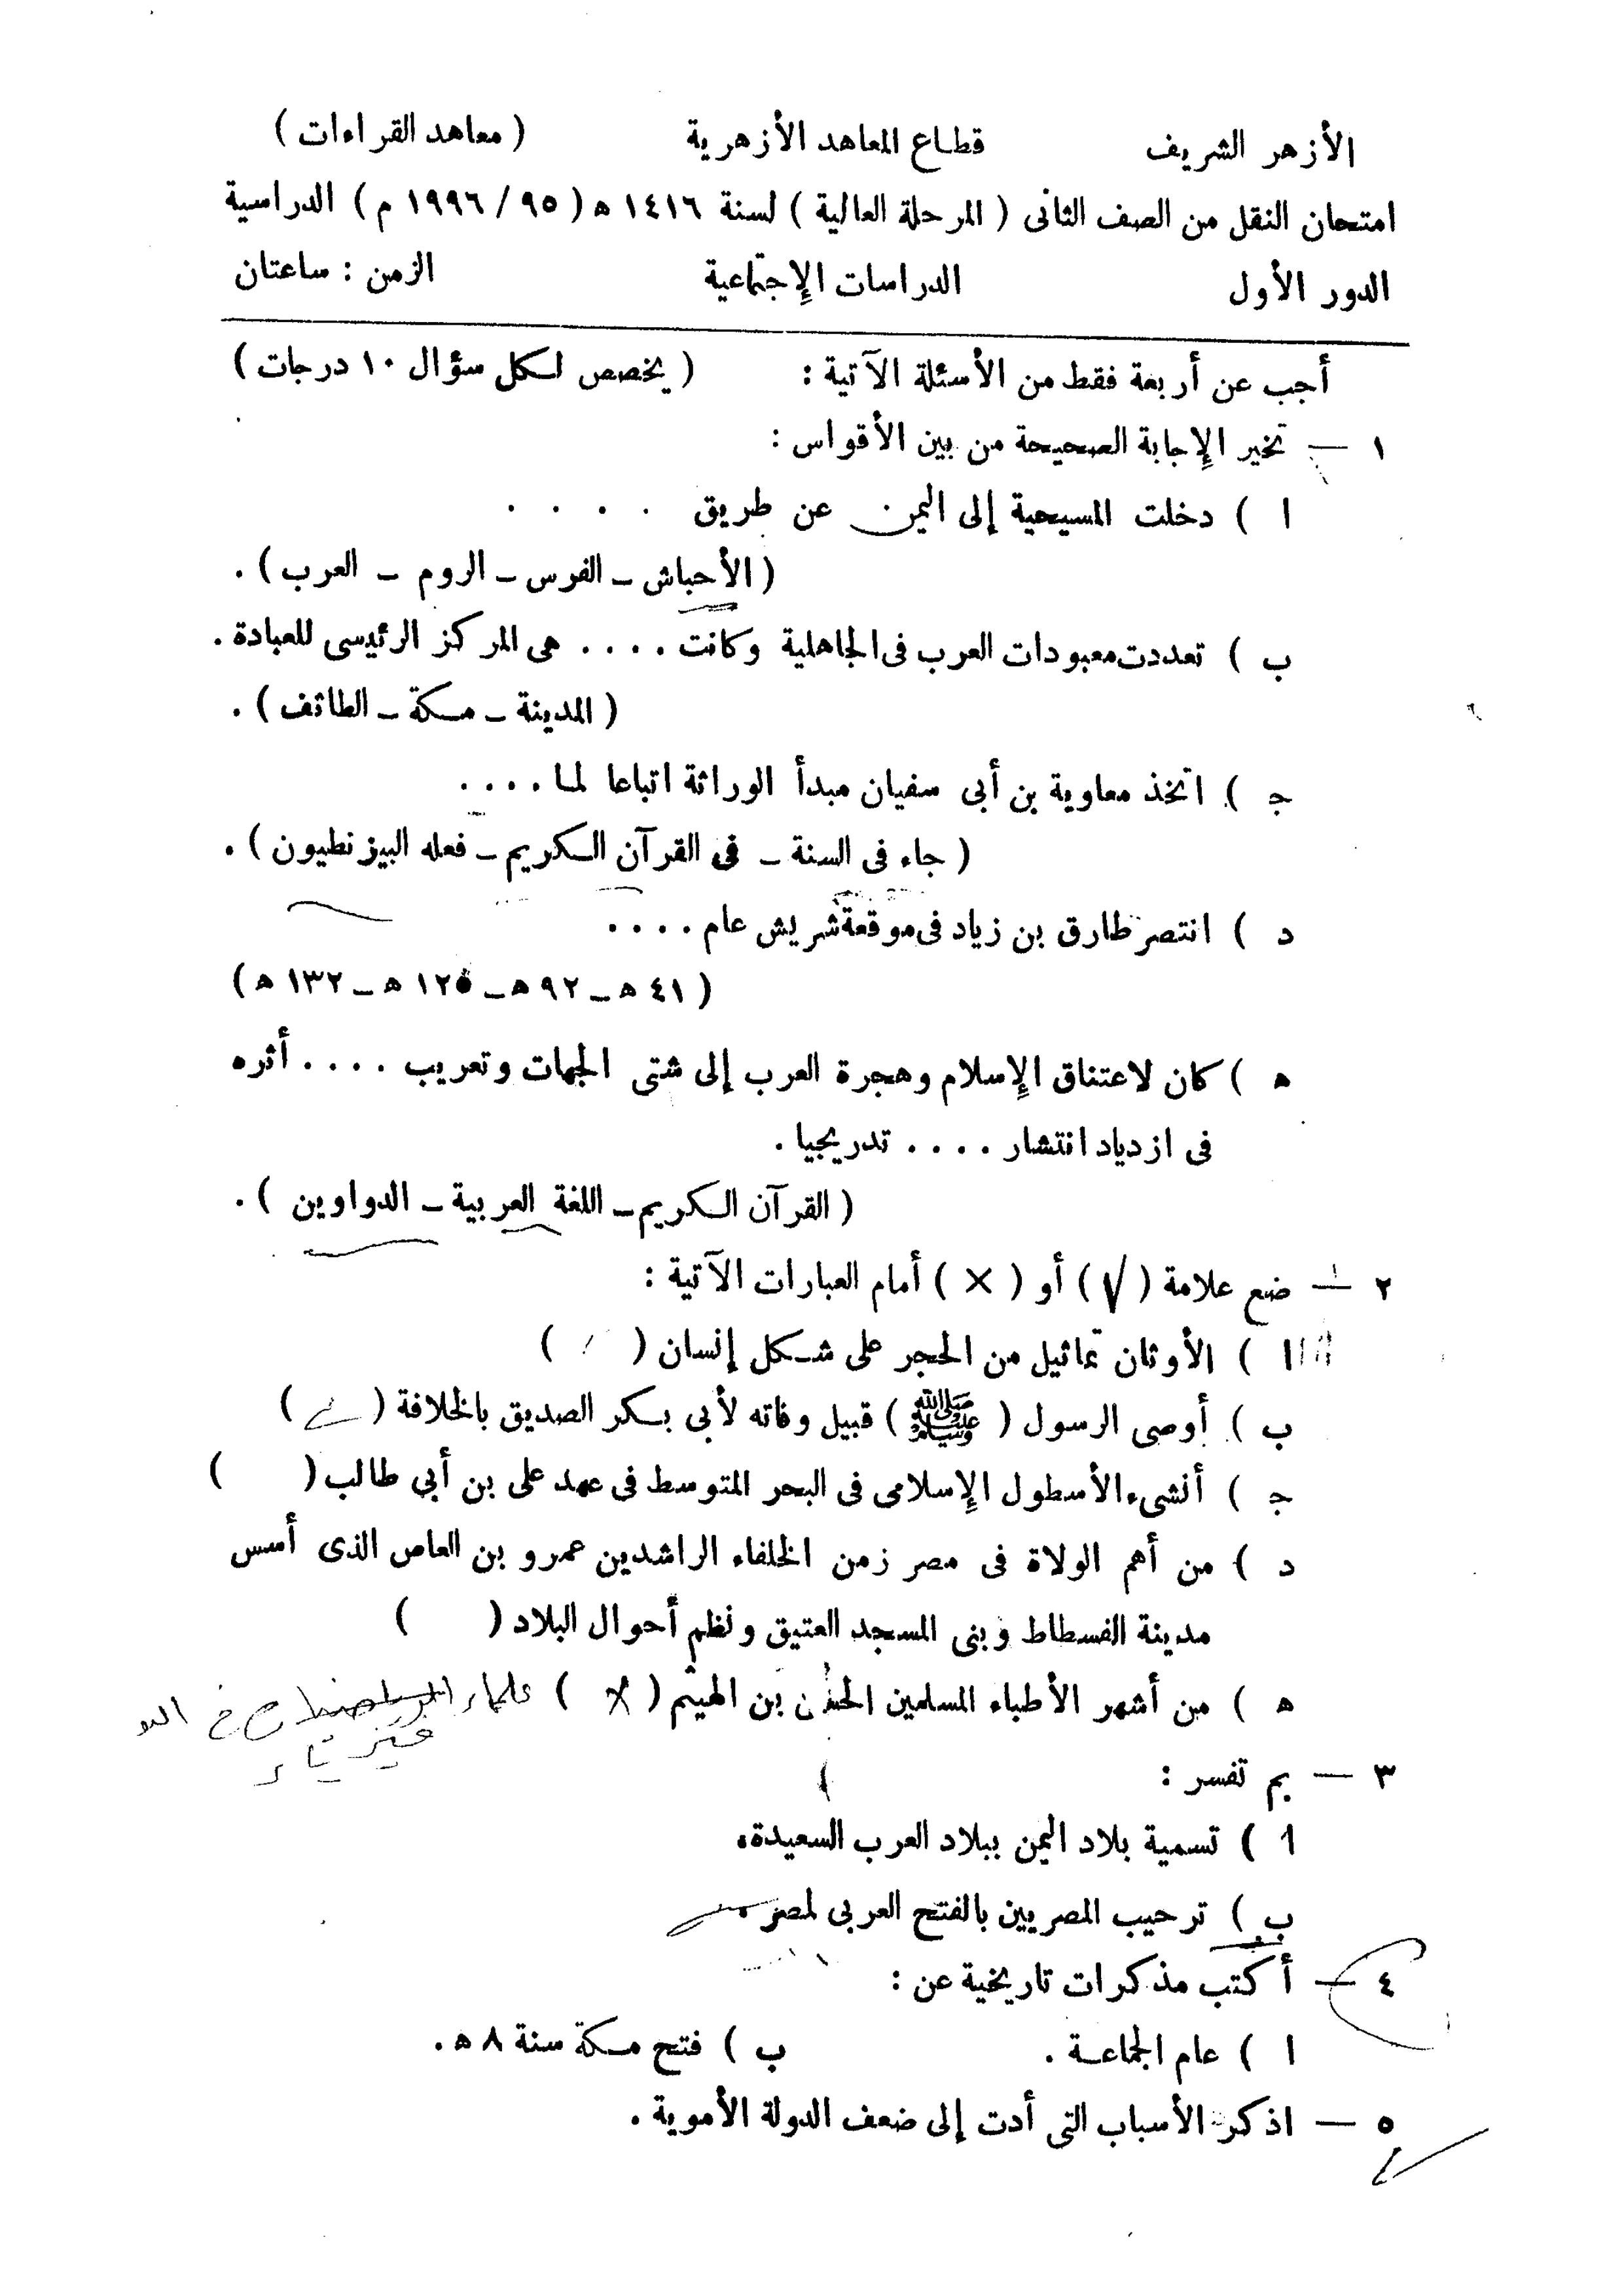 الأزهر الشريف قطاع المعاهد الأزهرية ( معاهد القراءات )
امتحان النقل من الصف الثانى ( المرحلة العالية ) لسنة ١٤١٦ ه ( ٩٥ / ١٩٩٦ م ) الدراسية
الدور الأول الدراسات الإجتماعية الزمن : ساعتان
أجب عن أربعة فقط من الأسئلة الآتية : ( يخصص لكل سؤال ١٠ درجات )
١ — تخير الإجابة الصحيحة من بين الأقواس :
ا ) دخلت المسيحية إلى اليمن عن طريق . . . .
( الأحباش – الفرس – الروم – العرب ) .
ب ) تعددت معبودات العرب فى الجاهلية وكانت . . . . هى المركز الرئيسى للعبادة .
( المدينة – مكة – الطائف ) .
ج ) اتخذ معاوية بن أبى سفيان مبدأ الوراثة اتباعا لما . . . .
( جاء فى السنة – فى القرآن الكريم – فعله البيزنطيون ) .
د ) انتصر طارق بن زياد فى موقعة شريش عام . . . .
( ٤١ ه – ٩٢ ه – ١٢٥ ه – ١٣٢ ه )
ه ) كان لاعتناق الإسلام وهجرة العرب إلى شتى الجهات وتعريب . . . . أثره
فى ازدياد انتشار . . . . تدريجيا .
( القرآن الكريم – اللغة العربية – الدواوين ) .
٢ — ضع علامة ( √ ) أو ( × ) أمام العبارات الآتية :
ا ) الأوثان تماثيل من الحجر على شكل إنسان ( )
ب ) أوصى الرسول ( ﷺ ) قبيل وفاته لأبى بكر الصديق بالخلافة ( )
ج ) أنشىء الأسطول الإسلامى فى البحر المتوسط فى عهد على بن أبي طالب ( )
د ) من أهم الولاة فى مصر زمن الخلفاء الراشدين عمرو بن العاص الذى أسس
مدينة الفسطاط وبنى المسجد العتيق ونظم أحوال البلاد ( )
ه ) من أشهر الأطباء المسلمين الحسن بن الهيثم ( × ) علماء
٣ — بم تفسر :
ا ) تسمية بلاد اليمن ببلاد العرب السعيدة .
ب ) ترحيب المصريين بالفتح العربى لمصر .
٤ — أكتب مذكرات تاريخية عن :
ا ) عام الجماعة . ب ) فتح مكة سنة ٨ ه .
٥ — اذكر الأسباب التى أدت إلى ضعف الدولة الأموية .